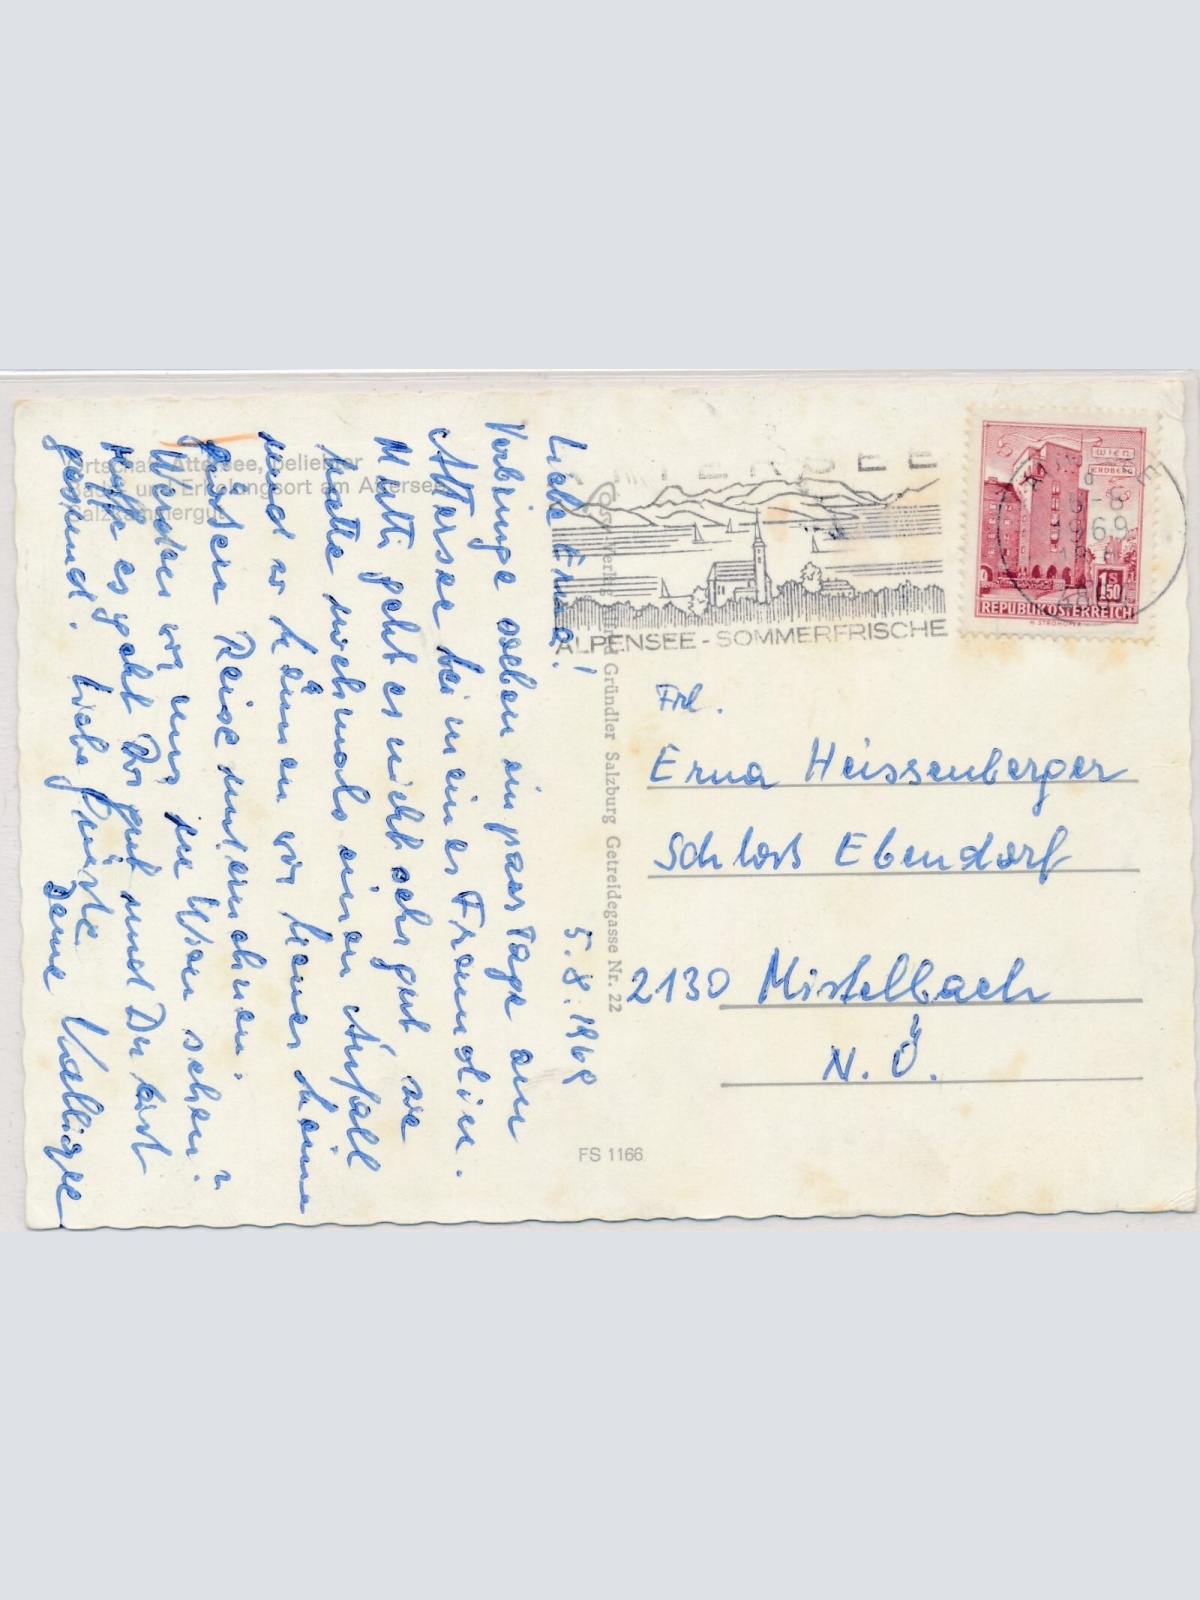 Ortschaft Attersee, beliebter
Bade- und Erholungsort am Attersee
Salzkammergut
5.8.1969
Liebe Erna!
Verbringe soeben ein paar Tage am
Attersee bei meiner Freundin.
Mutti geht es nicht sehr gut sie
hatte mehrmals einen Anfall
und so können wir keine
größere Reise unternehmen.
Werden wir uns in Wien sehen?
Hoffe es geht Dir gut und Du bist
gesund. Liebe Grüße
Deine
Cosy-Verlag Gründler Salzburg Getreidegasse Nr. 22
FS 1166
ATTERSEE
ALPENSEE-SOMMERFRISCHE
WIEN
ERDBERG
1S50
REPUBLIK ÖSTERREICH
1969
Frl.
Erna Heissenberger
Schloß Ebendorf
2130 Mistelbach
N.Ö.